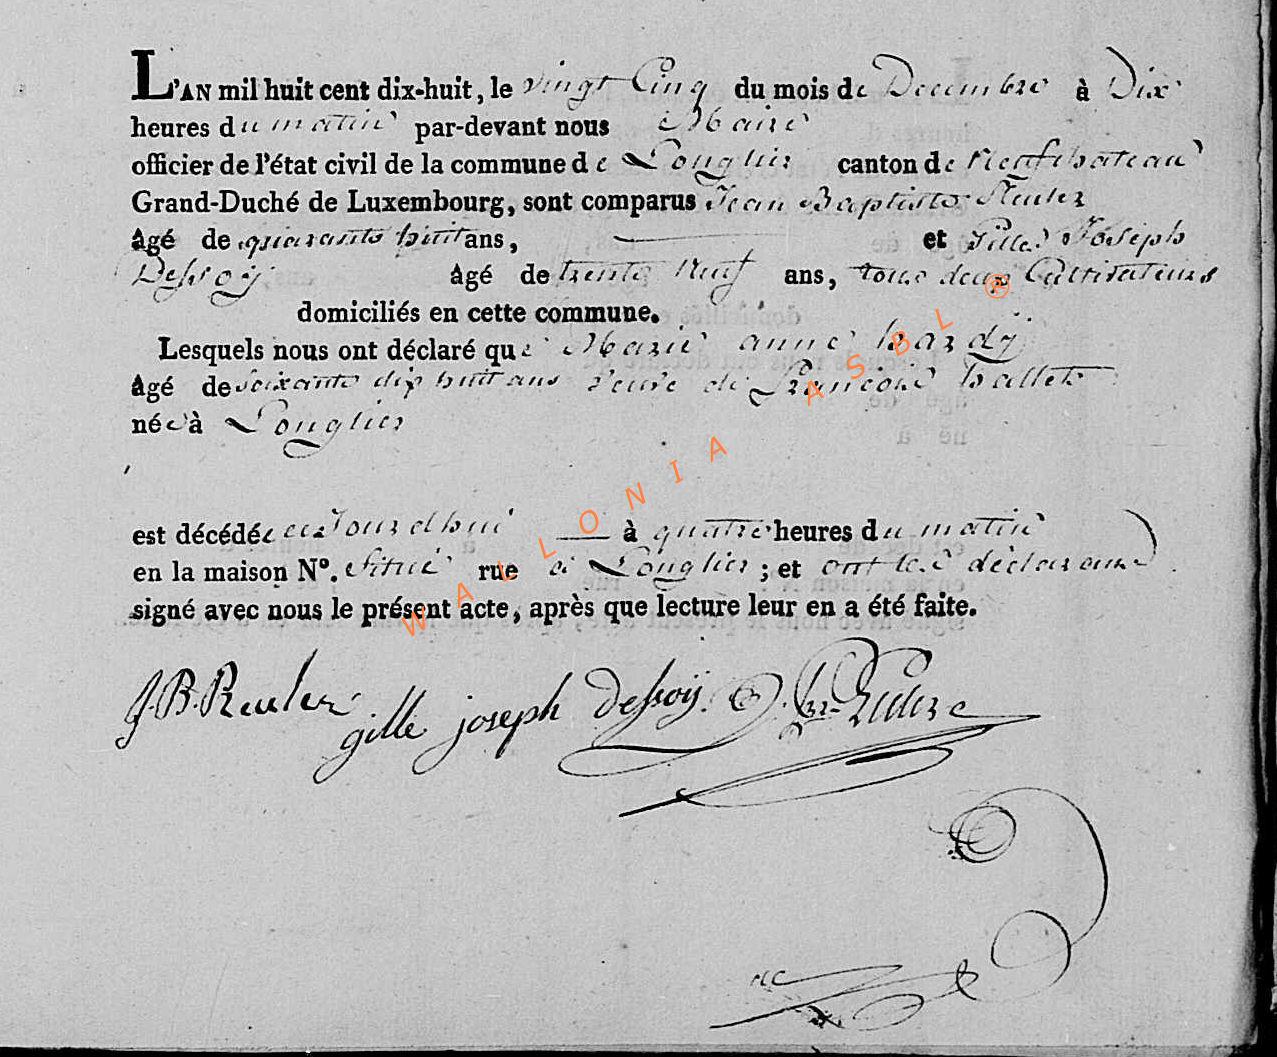 L'AN mil huit cent dix-huit, le vingt Cinq du mois de Decembre à Dix
heures du matin par-devant nous Maire
officier de l'état civil de la commune de Longlier canton de Neufchateau
Grand-Duché de Luxembourg, sont comparus Jean Baptiste Reuler
âgé de quarante huit ans, et Gille Joseph
Dessoÿ âgé de trente Neuf ans, tous deux Cultivateurs
domiciliés en cette commune.
Lesquels nous ont déclaré que Marie anne hardÿ
âgé de soixante dix huit ans veuve de François hallet
née à Longlier
est décédée ce Jourdhui à quatre heures du matin
en la maison Nº. Situé rue à Longlier ; et ont les déclarans
signé avec nous le présent acte, après que lecture leur en a été faite.
J.B. Reuler
gille joseph Dessoÿ
WALLONIA ASBL ®